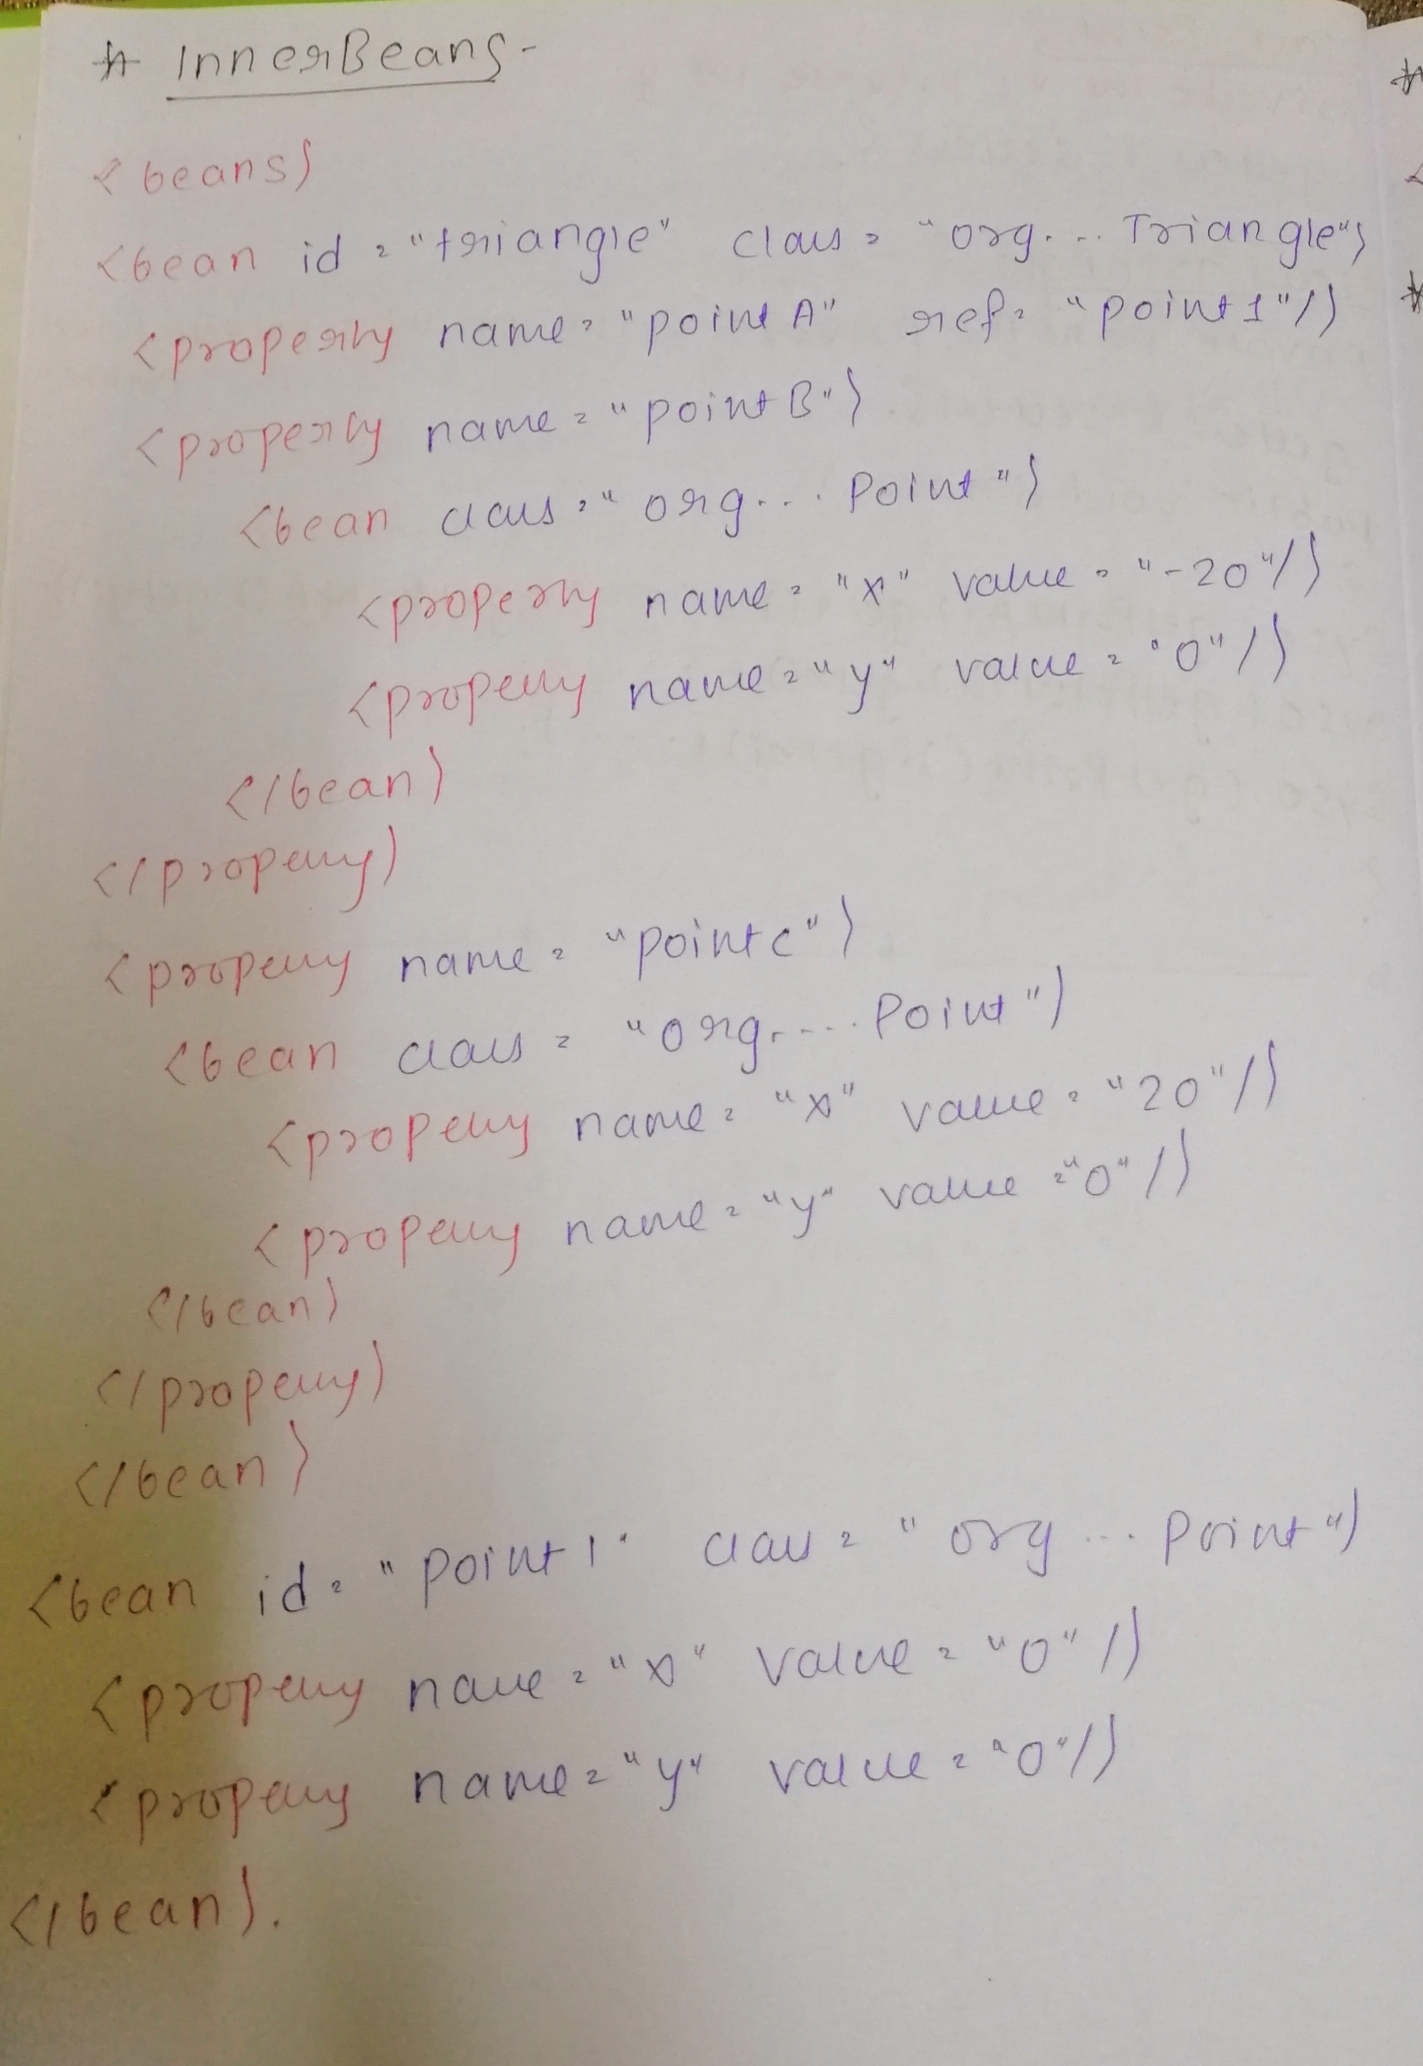 * InnerBeans-
<beans>
<bean id = "triangle" class = "org... Triangle">
<property name = "pointA" ref = "point1"/>
<property name = "pointB">
<bean class = "org... Point">
<property name = "x" value = "-20"/>
<property name = "y" value = "0"/>
</bean>
</property>
<property name = "pointc">
<bean class = "org..... Point">
<property name = "x" value = "20"/>
<property name = "y" value = "0"/>
</bean>
</property>
</bean>
<bean id = "point1" class = "org ... Point">
<property name = "x" value = "0"/>
<property name = "y" value = "0"/>
</bean>.